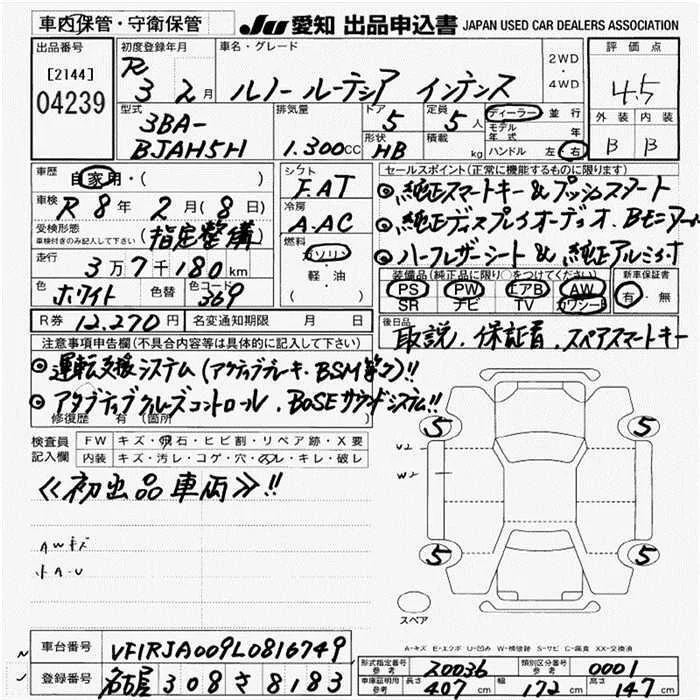 車内保管・守衛保管 JU 愛知 出品申込書 JAPAN USED CAR DEALERS ASSOCIATION
出品番号 初度登録年月 車名・グレード 2WD・4WD 評価点
[2144] R 3 2月 ルノー ルーテシア インテンス 4.5
04239 外装 内装
型式 排気量 ドア 定員 ディーラー 並行 B B
3BA- 5 5人 モデル年式 年
BJAH5H 1.300CC 形状 HB 積載 kg ハンドル 左 右
車歴 自家用・( ) シフト F.AT セールスポイント(正常に機能するものに限ります)
車検 R 8年 2月(8日) 冷房 A-AC ◎純正スマートキー&プッシュスタート
受検形態 車検付きのみ記入して下さい (指定整備) 燃料 ガソリン ◎純正ディスプレイオーディオ.Bモニター
走行 3万7千180km 軽・油 ◎ハーフレザーシート&純正アルミ
装備品(純正品に限り○をつけてください) 新車保証書
色 ホワイト 色替 色コード 369 PS PW エアB AW 有・無
SR ナビ TV カワシート
R券 12.270円 名変通知期限 月 日 後日品 取説.保証書.スペアスマートキー
注意事項申告欄(不具合内容等は具体的に記入して下さい)
◎運転支援システム(アクティブブレーキ.BSM等々)!!
◎アクティブクルーズコントロール.BOSEサウンドシステム!!
修復歴 有(箇所
検査員 FW キズ・飛石・ヒビ割・リペア跡・X要
記入欄 内装 キズ・汚レ・コゲ・穴・スレ・キレ・破レ
≪初出品車両≫!!
AWキズ
小A-U
5 5
U2
W2
5 5
スペア
A-キズ E-エクボ U-凹み W-補修跡 S-サビ C-腐食 XX-交換済
車台番号 VF1RJA009L0816749
登録番号 名古屋 308 さ 8183
形式指定番号 参考 20036 類別区分番号 参考 0001
車庫証明用 参考 長さ 407cm 幅 172cm 高さ 147cm